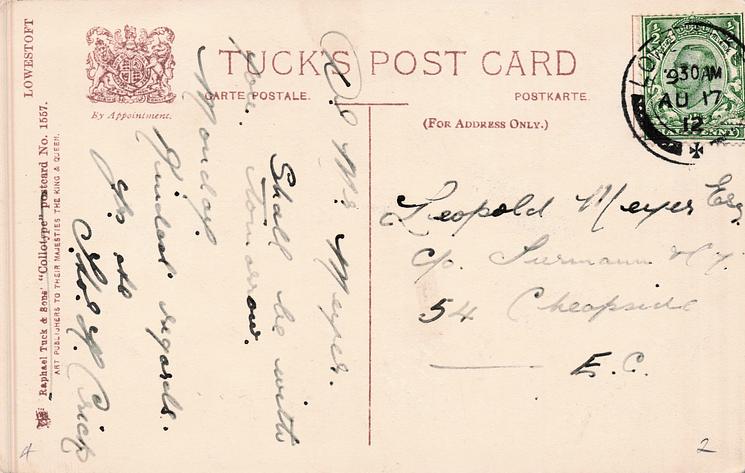 LOWESTOFT
By Appointment.
TUCK'S POST CARD
CARTE POSTALE.
POSTKARTE.
(FOR ADDRESS ONLY.)
Raphael Tuck & Sons' "Collotype" Postcard No. 1557.
ART PUBLISHERS TO THEIR MAJESTIES THE KING & QUEEN.
9.30AM
AU 17
12
Mr Meyer.
Shall be with
you tomorrow.
Monday.
Kindest regards.
Leopold Meyer Esq
c/o
54 Cheapside
E.C.
2